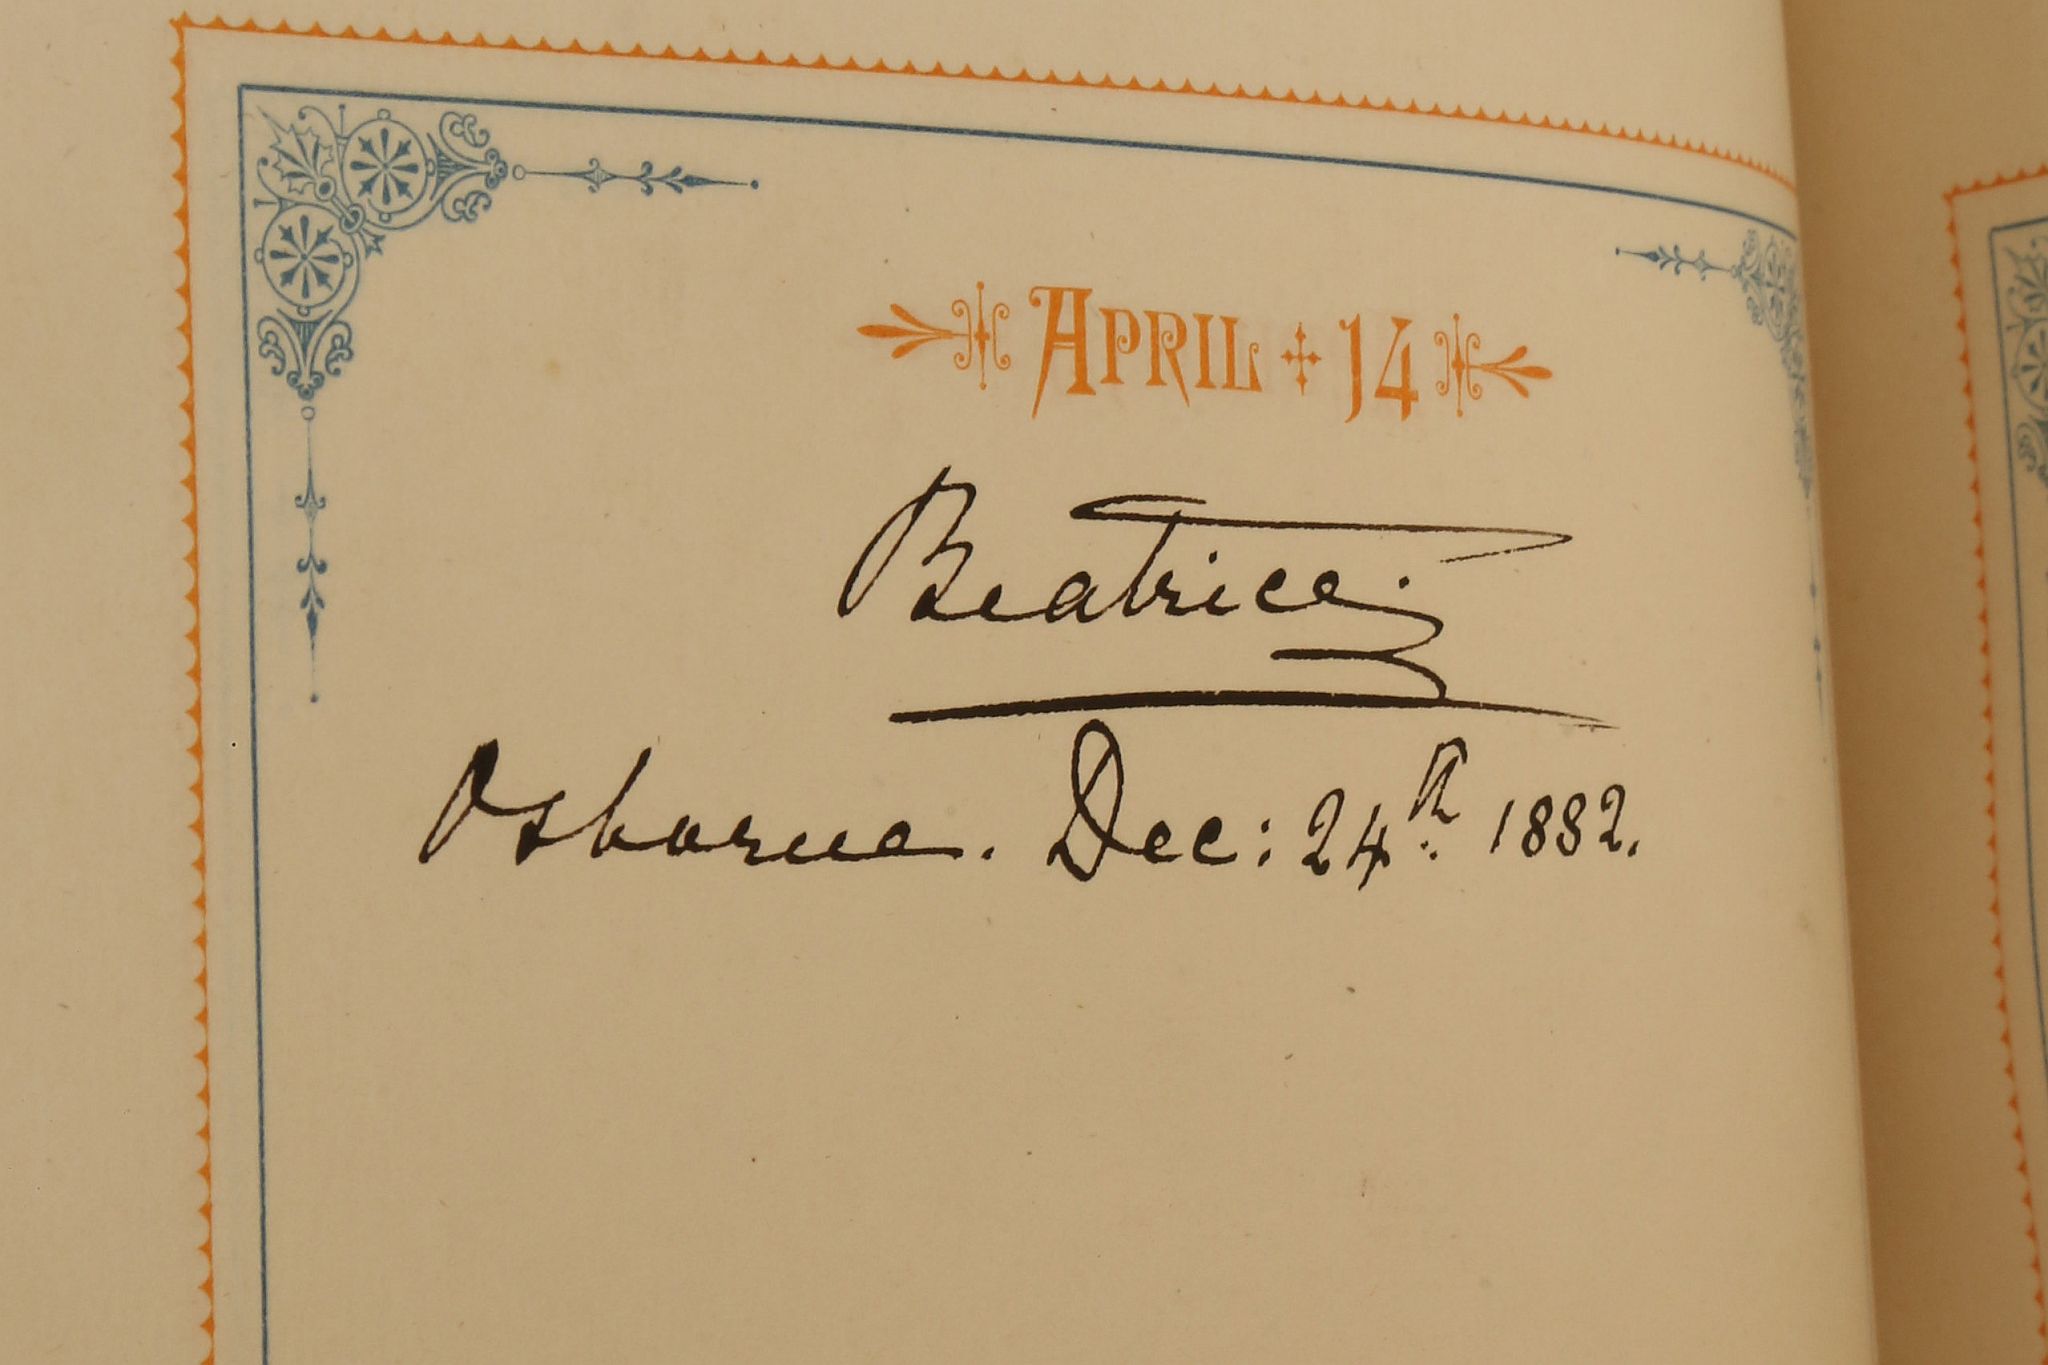 APRIL 14
Beatrice.
Osborne. Dec: 24th 1882.